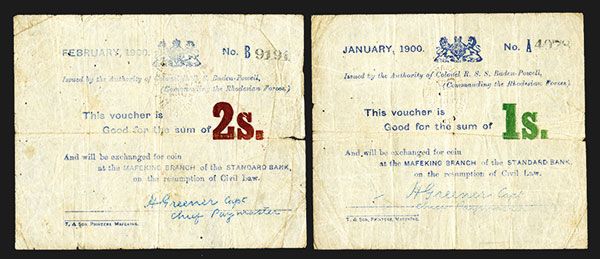 FEBRUARY, 1900.
No. B 9191
Issued by the Authority of Colonel R. S. S. Baden-Powell,
(Commanding the Rhodesian Forces.)
This voucher is
Good for the sum of 2s.
And will be exchanged for coin
at the MAFEKING BRANCH of the STANDARD BANK,
on the resumption of Civil Law.
H Greener Capt
Chief Paymaster
T. & SON, PRINTERS, MAFEKING.
JANUARY, 1900.
No. A
Issued by the Authority of Colonel R. S. S. Baden-Powell,
(Commanding the Rhodesian Forces.)
This voucher is
Good for the sum of 1s.
And will be exchanged for coin
at the MAFEKING BRANCH of the STANDARD BANK,
on the resumption of Civil Law.
H Greener Capt
Chief Paymaster
T. & SON, PRINTERS, MAFEKING.